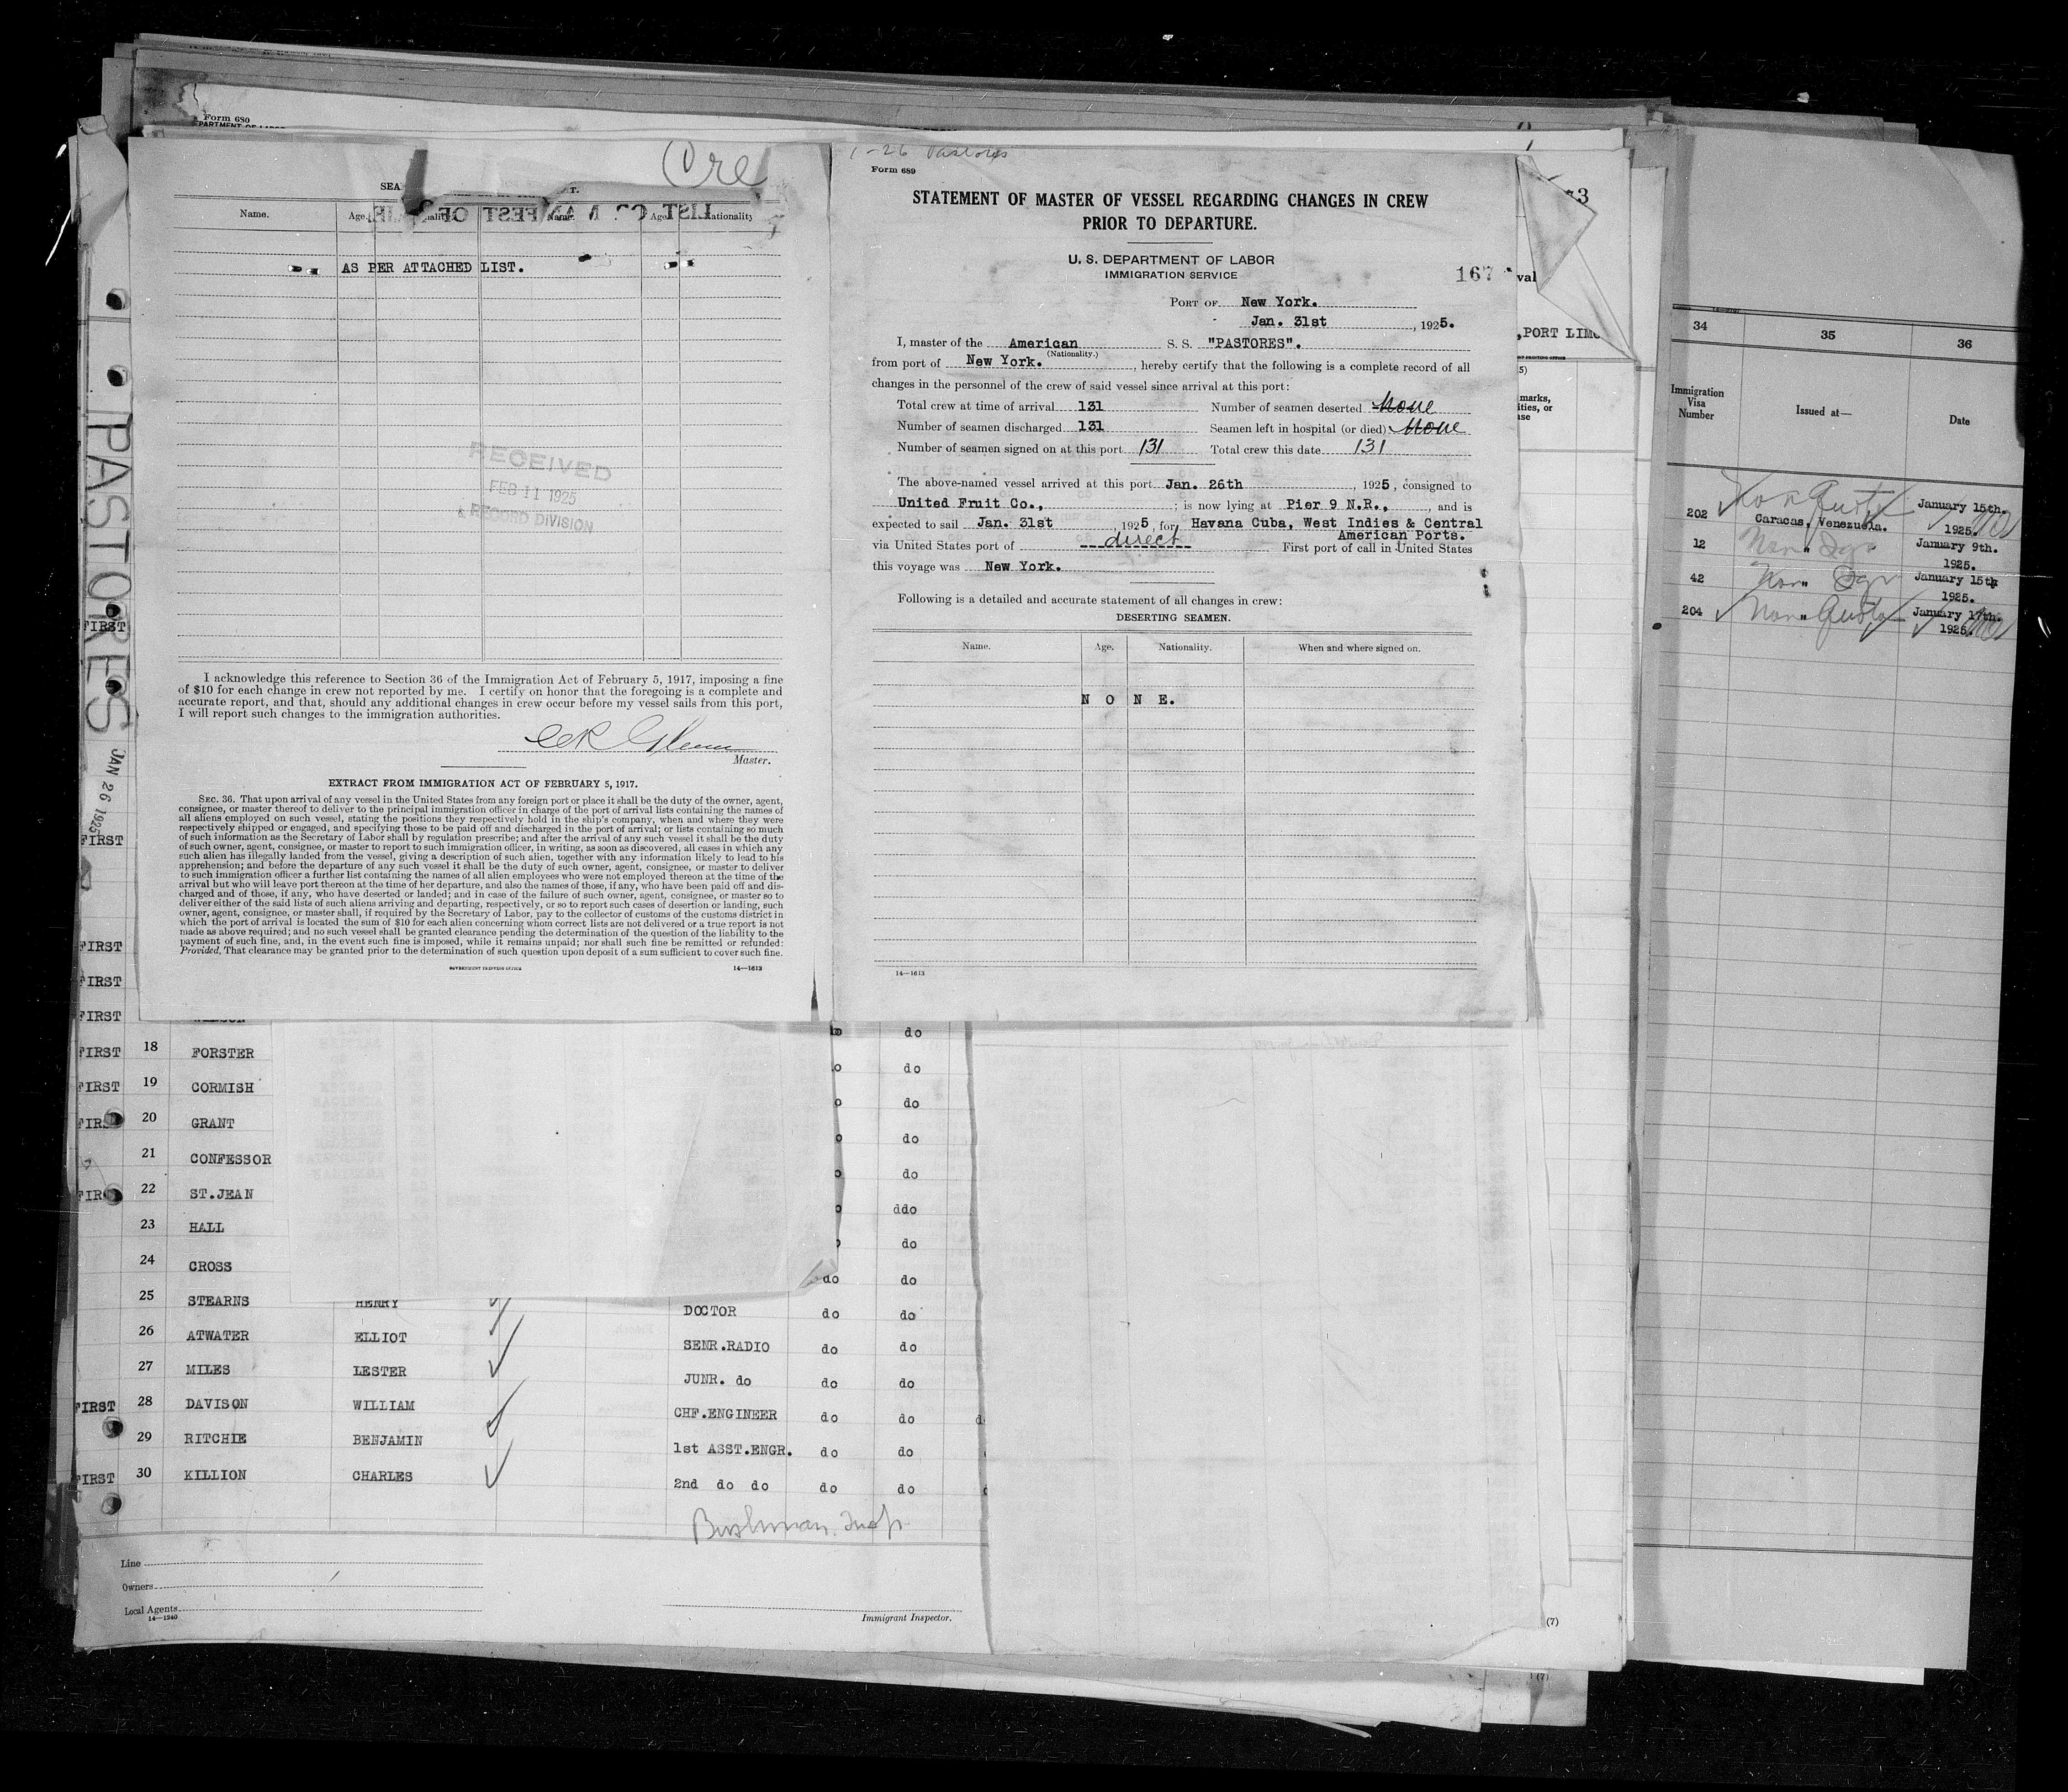 Form 680
Cre
SEA
T.
Name.
Age.
Name.
Age
Nationality
AS PER ATTACHED LIST.
RECEIVED
FEB 11 1925
& RECORD DIVISION
I acknowledge this reference to Section 36 of the Immigration Act of February 5, 1917, imposing a fine
of $10 for each change in crew not reported by me. I certify on honor that the foregoing is a complete and
accurate report, and that, should any additional changes in crew occur before my vessel sails from this port,
I will report such changes to the immigration authorities.
Master.
EXTRACT FROM IMMIGRATION ACT OF FEBRUARY 5, 1917.
SEC. 36. That upon arrival of any vessel in the United States from any foreign port or place it shall be the duty of the owner, agent,
consignee, or master thereof to deliver to the principal immigration officer in charge of the port of arrival lists containing the names of
all aliens employed on such vessel, stating the positions they respectively hold in the ship's company, when and where they were
respectively shipped or engaged, and specifying those to be paid off and discharged in the port of arrival; or lists containing so much
of such information as the Secretary of Labor shall by regulation prescribe; and after the arrival of any such vessel it shall be the duty
of such owner, agent, consignee, or master to report to such immigration officer, in writing, as soon as discovered, all cases in which any
such alien has illegally landed from the vessel, giving a description of such alien, together with any information likely to lead to his
apprehension; and before the departure of any such vessel it shall be the duty of such owner, agent, consignee, or master to deliver
to such immigration officer a further list containing the names of all alien employees who were not employed thereon at the time of the
arrival but who will leave port thereon at the time of her departure, and also the names of those, if any, who have been paid off and dis-
charged and of those, if any, who have deserted or landed; and in case of the failure of such owner, agent, consignee, or master so to
deliver either of the said lists of such aliens arriving and departing, respectively, or so to report such cases of desertion or landing, such
owner, agent, consignee, or master shall, if required by the Secretary of Labor, pay to the collector of customs of the customs district in
which the port of arrival is located the sum of $10 for each alien concerning whom correct lists are not delivered or a true report is not
made as above required; and no such vessel shall be granted clearance pending the determination of the question of the liability to the
payment of such fine, and, in the event such fine is imposed, while it remains unpaid; nor shall such fine be remitted or refunded:
Provided, That clearance may be granted prior to the determination of such question upon deposit of a sum sufficient to cover such fine.
GOVERNMENT PRINTING OFFICE
14—1613
1-26 Pastores
Form 689
STATEMENT OF MASTER OF VESSEL REGARDING CHANGES IN CREW
PRIOR TO DEPARTURE.
U. S. DEPARTMENT OF LABOR
IMMIGRATION SERVICE
167
PORT OF New York.
Jan. 31st, 1925.
I, master of the American S. S. "PASTORES".
(Nationality.)
from port of New York., hereby certify that the following is a complete record of all
changes in the personnel of the crew of said vessel since arrival at this port:
Total crew at time of arrival 131 Number of seamen deserted None
Number of seamen discharged 131 Seamen left in hospital (or died) None
Number of seamen signed on at this port 131 Total crew this date 131
The above-named vessel arrived at this port Jan. 26th, 1925, consigned to
United Fruit Co., ; is now lying at Pier 9 N.R., , and is
expected to sail Jan. 31st, 1925, for Havana Cuba, West Indies & Central
American Ports.
via United States port of direct First port of call in United States
this voyage was New York.
Following is a detailed and accurate statement of all changes in crew:
DESERTING SEAMEN.
Name. Age. Nationality. When and where signed on.
N O N E.
14—1613
3
val
,PORT LIMO
marks,
ities, or
se
34 35 36
Immigration
Visa
Number
Issued at—
Date
202 Non Quota January 15th.
Caracas, Venezuela. 1925.
12 Non " January 9th.
1925.
42 Non " January 15th
1925.
204 Non " Quota January 17th.
1925.
PASTORES
JAN 26 1925
FIRST
FIRST
FIRST
FIRST
FIRST do
FIRST 18 FORSTER do
FIRST 19 CORMISH do
FIRST 20 GRANT do
21 CONFESSOR do
FIRST 22 ST.JEAN ddo
23 HALL do
24 CROSS do do
25 STEARNS HENRY DOCTOR do do
26 ATWATER ELLIOT SENR.RADIO do do
27 MILES LESTER JUNR. do do do
FIRST 28 DAVISON WILLIAM CHF.ENGINEER do do
29 RITCHIE BENJAMIN 1st ASST.ENGR. do do
FIRST 30 KILLION CHARLES 2nd do do do do
Bushman. Insp.
Line
Owners
Local Agents
14—1240
Immigrant Inspector.
(7)
(7)